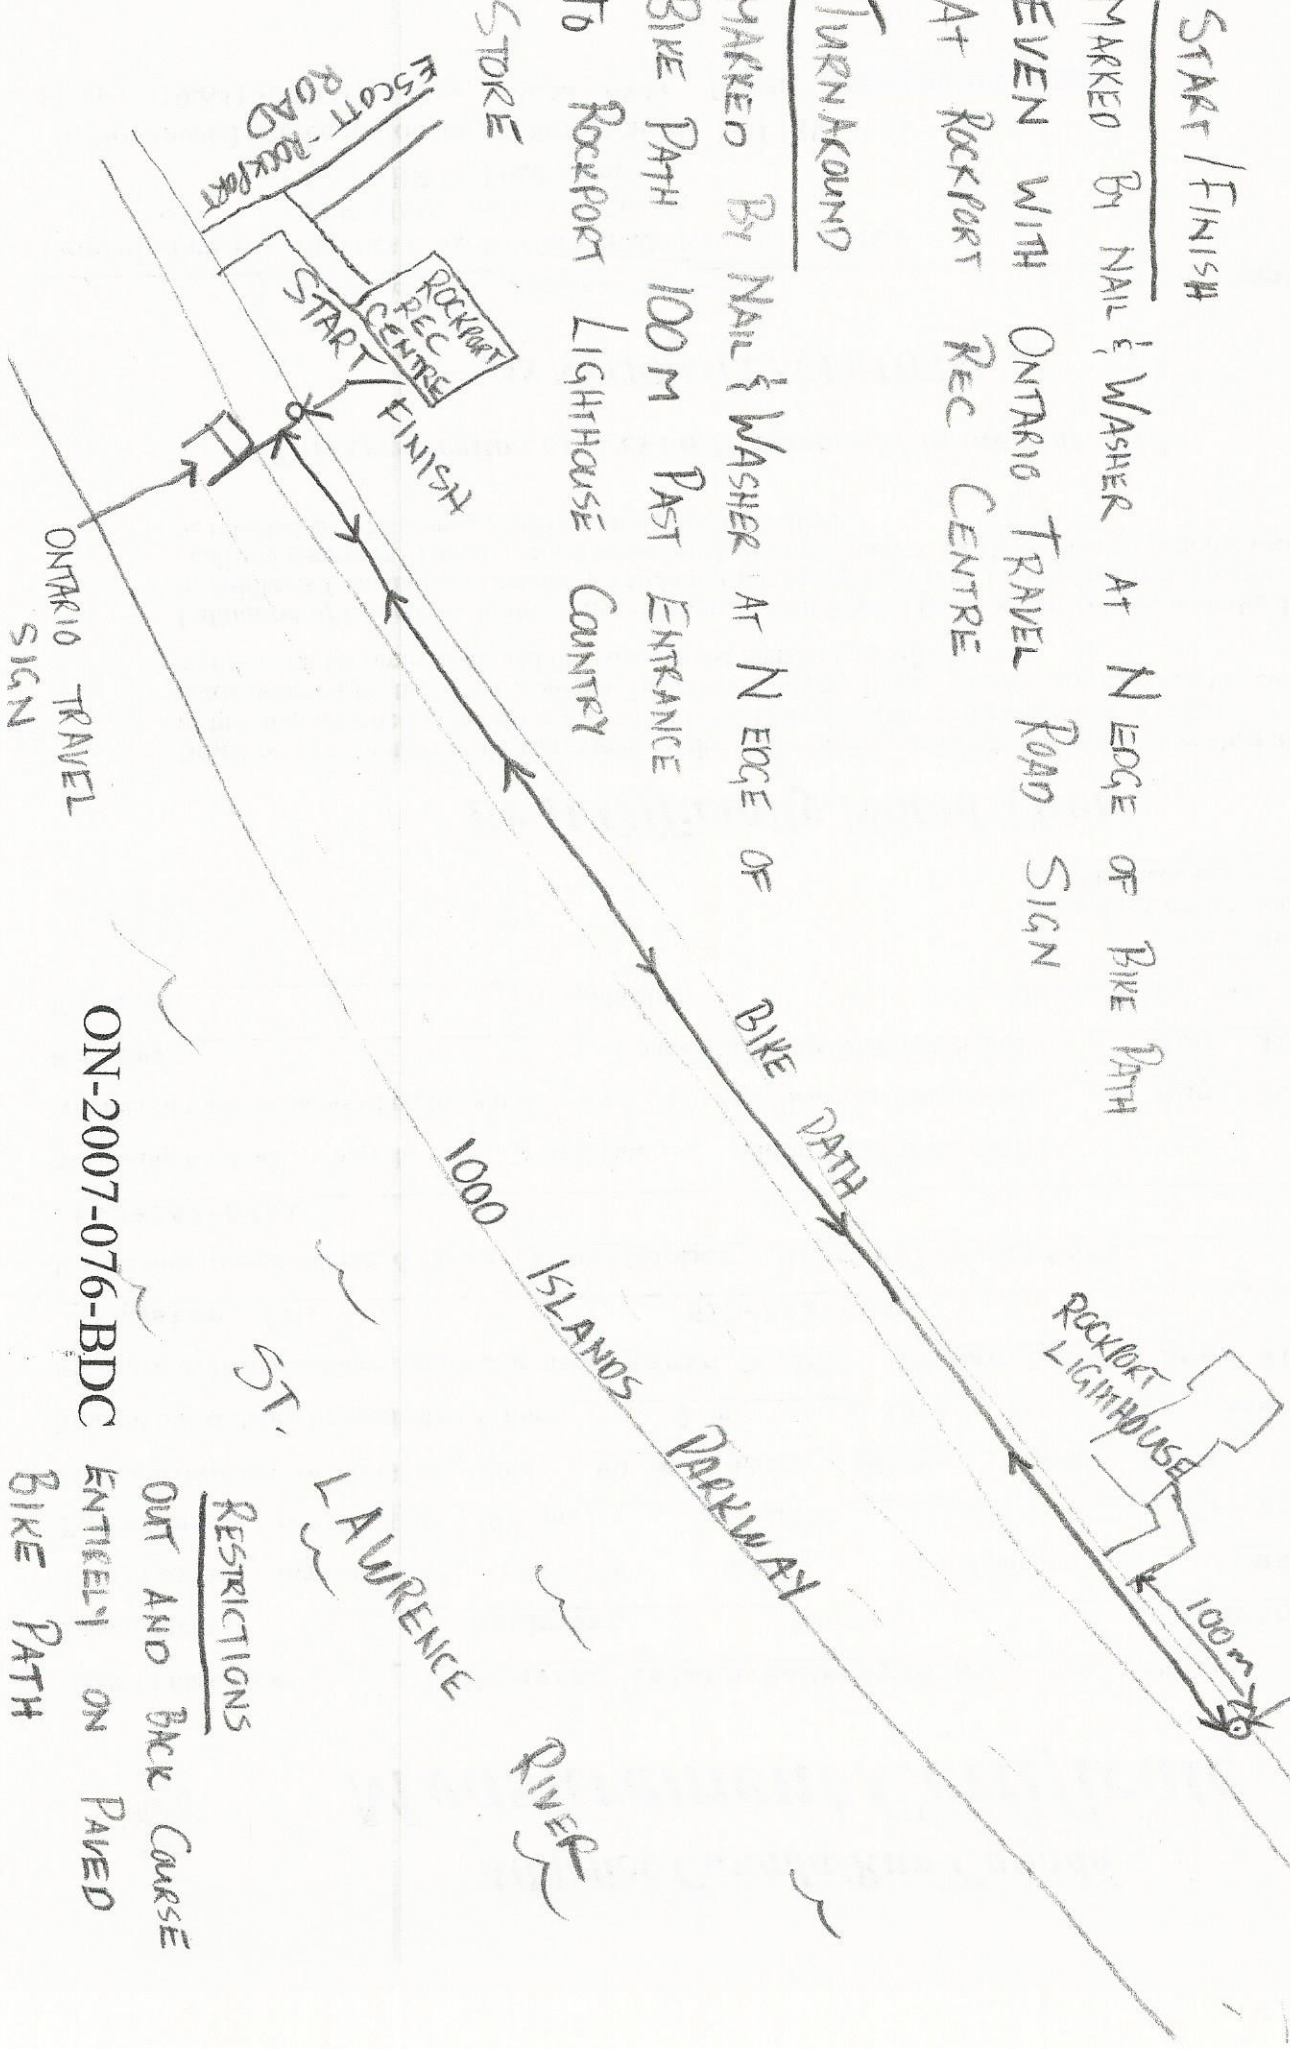 START/FINISH
MARKED BY NAIL & WASHER AT N EDGE OF BIKE PATH
EVEN WITH ONTARIO TRAVEL ROAD SIGN
AT ROCKPORT REC CENTRE
TURNAROUND
MARKED BY NAIL & WASHER AT N EDGE OF
BIKE PATH 100M PAST ENTRANCE
TO ROCKPORT LIGHTHOUSE COUNTRY
STORE
ESCOTT-ROCKPORT
ROAD
ROCKPORT
REC
CENTRE
START
FINISH
ONTARIO TRAVEL
SIGN
BIKE PATH
ROCKPORT
LIGHTHOUSE
100m
1000 ISLANDS PARKWAY
ST. LAWRENCE RIVER
RESTRICTIONS
OUT AND BACK COURSE
ENTIRELY ON PAVED
BIKE PATH
ON-2007-076-BDC